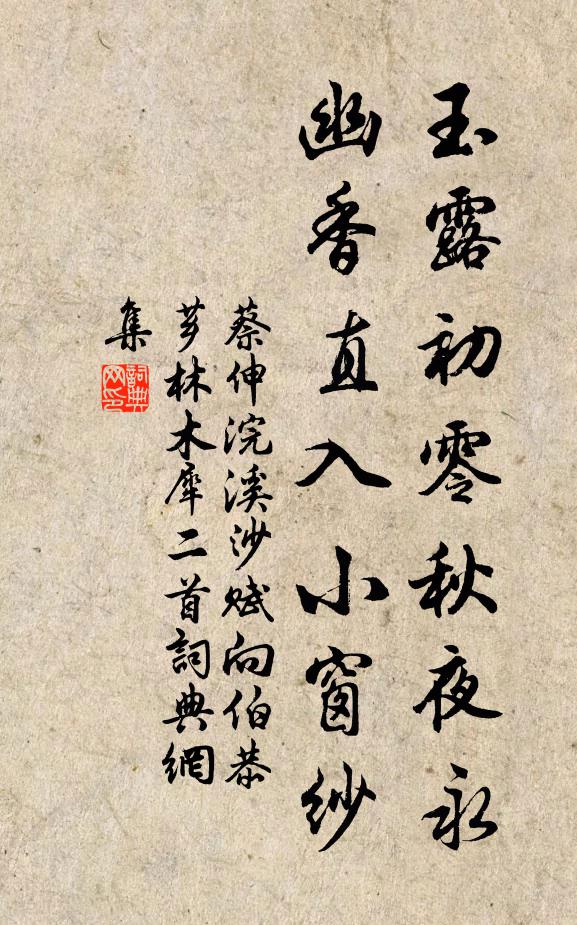 玉露初零秋夜永
幽香直入小窗紗
蔡伸浣溪沙賦向伯恭
芗林木犀二首詞典網
集
詞典網印